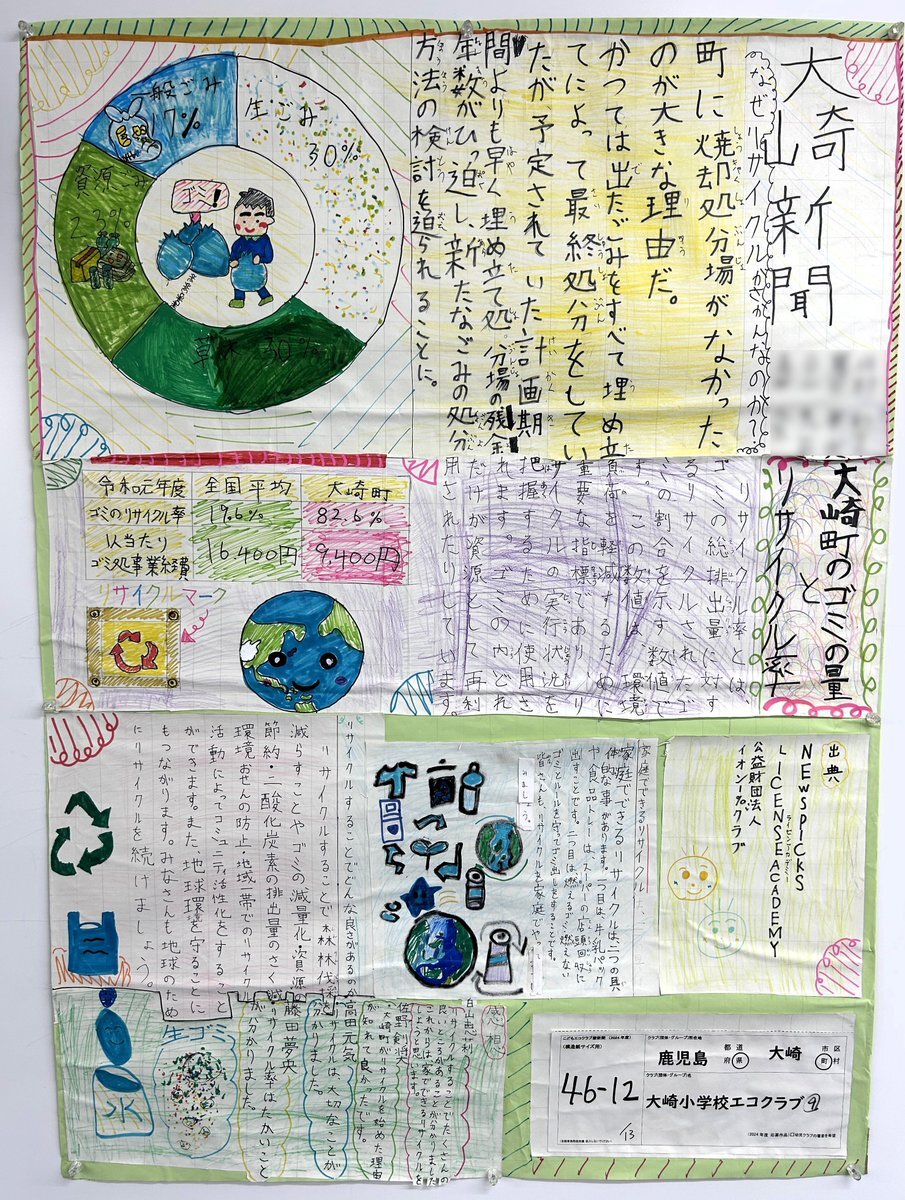 大崎
山新聞
なぜリサイクルがさかんなのか
町に焼却処分場がなかった
のが大きな理由だ。
かつては出たごみをすべて埋め立
てによって最終処分をしてい
たが、予定されていた計画期
間よりも早く埋め立て処分場の残余
年数がひっ迫し、新たなごみの処分
方法の検討を迫られることに。
一般ごみ
17%
生ごみ
30%
資源ごみ
23%
草木 30%
ゴミ!
大崎町のゴミの量
と
リサイクル率
リサイクル率とは
ゴミの総排出量に対す
るリサイクルされたご
ミの割合を示す数値で
す。この数値は、環境
負荷を軽減するために
重要な指標であり、リ
サイクルの実行状況を
把握するために使用さ
れます。ゴミの内どれ
だけが資源として再利
用されたりしています。
令和元年度 全国平均 大崎町
ゴミのリサイクル率 19.6% 82.6%
1人当たり
ゴミ処事業経費 16,400円 9,400円
リサイクルマーク
出典
NEWSPICKS
LICENSEACADEMY
ライセンスアカデミー
公益財団法人
イオンワンパークラブ
家庭でできるリサイクル
家庭でできるリサイクルは、二つの具
体的な事があります。一つ目は、牛乳パック
や食品トレーは、スーパーの店頭回収に
出すことです。二つ目は、燃えるゴミ、燃えない
ゴミとルールを守ってゴミ出しをすることです。
皆さんも、リサイクルを家庭でやって
みましょう。
リサイクルすることでどんな良さがあるのか
リサイクルすることで森林伐採を
減らすことやゴミの減量化・資源の
節約・二酸化炭素の排出量のさく減
環境おせんの防止・地域一帯でのリサイクル
活動によってコミュニティ活性化をすること
ができます。また、地球環境を守ることに
もつながります。みなさんも地球のため
にリサイクルを続けましょう。
感想
白山志莉
リサイクルすることでたくさんの
良いところがあることが分かりました。
これからは家でできるリサイクルを
しようと思います。
佐野莉将
大崎町がリサイクルを始めた理由
が知れて良かったです。
高田元気
リサイクルは、大切なことが
分かりました。
藤田夢央
リサイクル率はたかいこと
が分かりました。
生ゴミ
水
こどもエコクラブ壁新聞（2024年度）
（模造紙サイズ用）
46-12
クラブ(団体・グループ)所在地
鹿児島 都道府県 大崎 市区町村
クラブ(団体・グループ)名
大崎小学校エコクラブ⑨
13